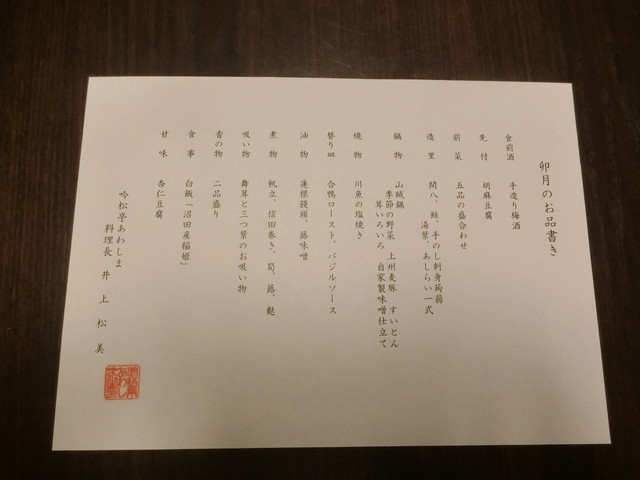 卯月のお品書き
食前酒 手造り梅酒
先付 胡麻豆腐
前菜 五品の盛合わせ
造里 間八、鮭、手のし刺身蒟蒻
湯葉、あしらい一式
鍋物 山賊鍋
季節の野菜 上州麦豚 すいとん
茸いろいろ 自家製味噌仕立て
焼物 川魚の塩焼き
替り皿 合鴨ロースト、バジルソース
油物 蓮根饅頭、蕗味噌
煮物 帆立、信田巻き、筍、蕗、麩
吸い物 舞茸と三つ葉のお吸い物
香の物 二品盛り
食事 白飯「沼田産稲姫」
甘味 杏仁豆腐
吟松亭あわしま
料理長 井上松美